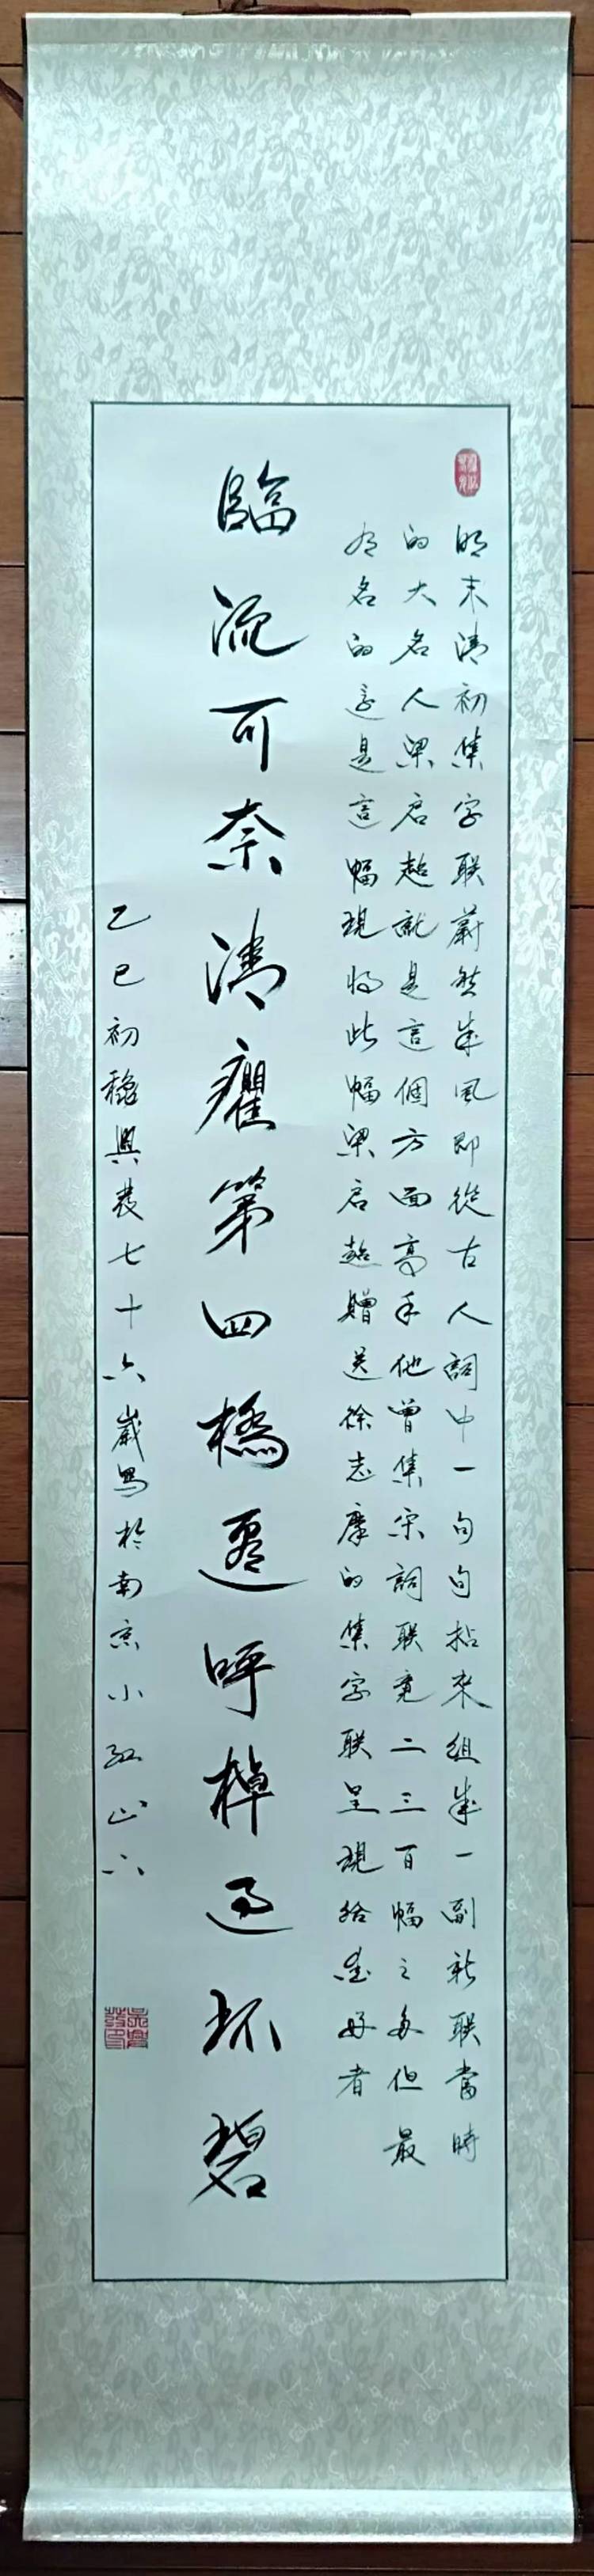 明末清初集字联蔚然成风即從古人詞中一句句拈来组成一副新联當時
的大名人梁启超就是這個方面高手他曾集宋詞联竟二三百幅之多但最
有名的還是這幅現将此幅梁启超贈送徐志摩的集字联呈現给爱好者
臨流可奈清癯第四橋邊呼棹過环碧
乙巳初穐興發七十六歲写於南京小红山下